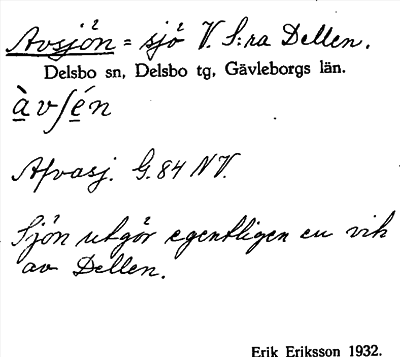 Avsjön = sjö V. S:ra Dellen.
Delsbo sn, Delsbo tg, Gävleborgs län.
àvʃén
Afvasj. G. 84 NV.
Sjön utgör egentligen en vik
av Dellen.
Erik Eriksson 1932.